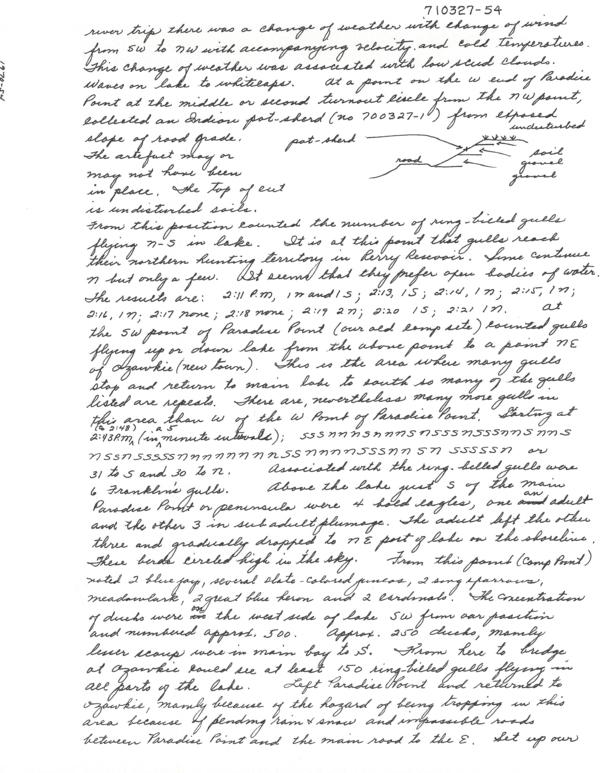 710327-54
river trip there was a change of weather with change of wind
from SW to NW with accompanying velocity and cold temperatures.
This change of weather was associated with low scud clouds.
Waves on lake to whitecaps. At a point on the W end of Paradise
Point at the middle or second turnout circle from the NW point,
collected an Indian pot-sherd (no 700327-1) from exposed
slope of road grade.
pot-sherd
undisturbed
soil
gravel
gravel
road
The artefact may or
may not have been
in place. The top of cut
is undisturbed soils.
From this position counted the number of ring-billed gulls
flying N-S in lake. It is at this point that gulls reach
their northern hunting territory in Perry Resevoir. Some continue
N but only a few. It seems that they prefer open bodies of water.
The results are: 2:11 P.M, 1N and 1S; 2:13, 1S; 2:14, 1N; 2:15, 1N;
2:16, 1N; 2:17 none; 2:18 none; 2:19 2N; 2:20 1S; 2:21 1N. At
the SW point of Paradise Point (our old camp site) counted gulls
flying up or down lake from the above point to a point NE
of Ozawkie (new town). This is the area where many gulls
stop and return to main lake to south so many of the gulls
listed are repeats. There are, nevertheless many more gulls in
this area than W of the W Point of Paradise Point. Starting at
(to 2:48) a 5
2:43 P.M. (in minute intervals);
or
31 to S and 30 to N. Associated with the ring-billed gulls were
6 Franklin's gulls. Above the lake just S of the main
Paradise Point or peninsula were 4 bald eagles, one an adult
and the other 3 in subadult plumage. The adult left the other
three and gradually dropped to NE part of lake on the shoreline.
These birds circled high in the sky. From this point (Camp Point)
noted 2 blue jay, several slate-colored juncos, 2 song sparrows,
meadowlark, 2 great blue heron and 2 cardinals. The concentration
of ducks were on the west side of lake SW from our position
and numbered approx. 500. Approx. 250 ducks, mainly
lesser scaup were in main bay to S. From here to bridge
at Ozawkie could see at least 150 ring-billed gulls flying in
all parts of the lake. Left Paradise Point and returned to
Ozawkie, mainly because of the hazard of being trapping in this
area because of pending rain & snow and impassible roads
between Paradise Point and the main road to the E. Set up our